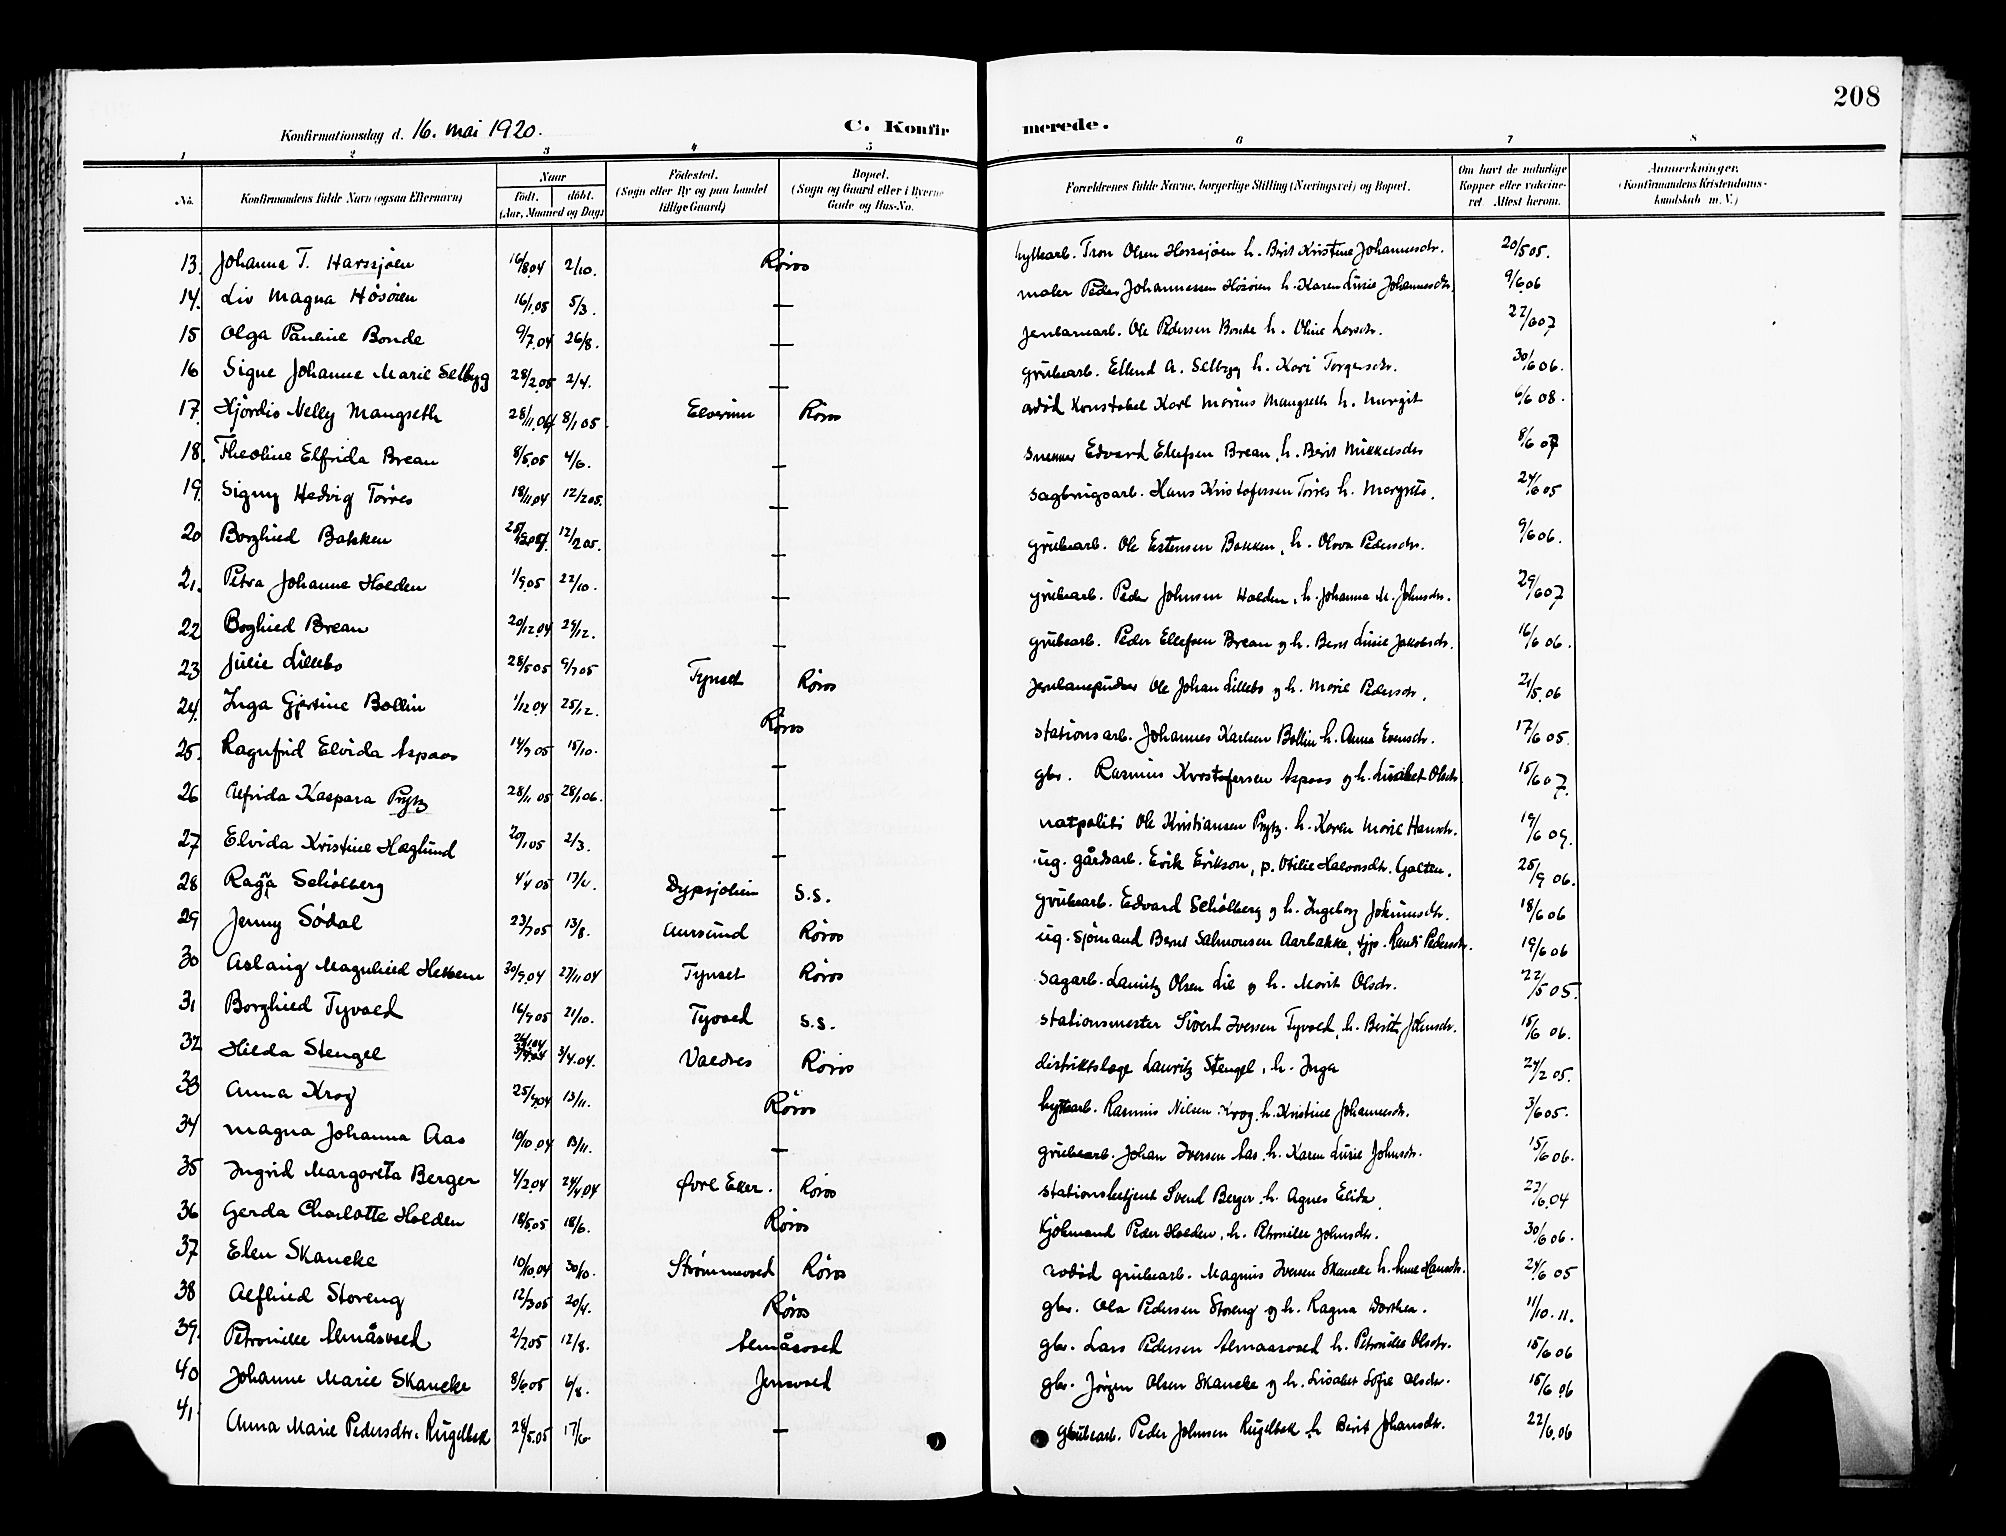 208
Konfirmationsdag d. 16. mai 1920.
C. Konfir
merede.
1 2 3 4 5 6 7 8
No. Konfirmandens fulde Navn (ogsaa Efternavn) Naar født. døbt. (Aar, Maaned og Dag) Fødested. (Sogn eller By og paa Landet tillige Gaard) Bopæl. (Sogn og Gaard eller i Byerne Gade og Hus-No. Forældrenes fulde Navne, borgerlige Stilling (Næringsvei) og Bopæl. Om havt de naturlige Kopper eller vaccineret. Attest herom. Anmærkninger. (Konfirmandens Kristendomskundskab m. V.)
13. Johanna T. Harssjøen 16/8.04 2/10. Røros hyttearb. Tron Olsen Harssjøen h. Berit Kristine Johannesdr. 20/5 05.
14. Liv Magna Høsøien 16/1.05 5/3. — maler Peder Johannessen Høsøien h. Karen Lusie Johannesdr. 9/6.06
15 Olga Pauline Bonde 9/7.04 26/8. — jenbanearb. Ole Pedersen Bonde h. Oline Larsdr. 22/6 07
16 Signe Johanne Marie Selbyg 28/2.05 2/4. — grubearb. Ellend A. Selbyg h. Kari Torgersdr. 30/6 06.
17. Hjördis Nelly Mangseth 28/11.04 8/1 05. Elverum Röros avdöd Konstabel Karl Marius Mangseth h. Margit 6/6 08.
18. Theoline Elfrida Brean 8/5.05 4/6. — snekker Edvard Ellefsen Brean, h. Berit Mikkelsdr 8/6 07
19. Signy Hedvig Törres 18/11.04 12/2 05. — sagbrugsarb. Hans Kristofersen Törres h. Margrete. 24/6 05
20 Borghild Bakken 12/2 05. — grubearb. Ole Estensen Bakken, h. Olova Pedersdr. 9/6 06.
21. Petra Johanne Holden 1/9.05 22/10. — grubearb. Peder Johnsen Holden, h. Johanna M. Johnsdr. 29/6 07
22 Boghild Brean 20/12.04 29/12. — grubearb. Peder Ellefsen Brean og h. Berit Lusie Jakobsdr. 16/6 06.
23 Julie Lillebo 28/5 05 9/7 05 Tynset Röros Ole Johan Lillebo og h. Marie Pedersdr. 21/5.06
24. Inga Gjertine Bollin 1/12.04 25/12. Röros stationsarb. Johannes Karlsen Bollin h. Anna Evensdr. 17/6 05.
25. Ragnfrid Elvida Aspaas 14/9 05 15/10. — gbr. Rasmus Kristofersen Aspaas og h. Lisabet Olsdr. 15/6 07.
26 Alfrida Kaspara Prytz 28/11 05 28/1 06. — natpoliti Ole Kristiansen Prytz. h. Karen Marie Hansdr. 19/6 09.
27 Elvida Kristine Haglund 20/1 05 2/3. — ug. gårdsarb. Erik Erikson, p. Otilie Halvorsdr. Galten. 25/9 06.
28 Ragna Schölberg 4/4 05 Dypsjölien S.S. grubearb. Edvard Schölberg og h. Ingeborg 18/6 06
29 Jenny Södal 23/7 05 13/8. Aursund Röros ug. Sjömand Bernt Salmonsen Aarbakke, tjp. Randi Pedersdr. 19/6 06
30 Aslaug Magnhild 30/9.04 27/11 04 Tynset Röros sagarb. Lauritz Olsen Lie og h. Marit Olsdr. 22/5 05.
31 Borghild Tyvold 16/9 05 21/10. Tyvold S.S. stationsmester Sivert Iversen Tyvold, h. Berit Johnsdr. 15/6 06.
32 Hilda Stengel 3/4.04. Valdres Röros distriktslæge Lauritz Stengel, h. Inga 24/2 05.
33 Anna Krog 25/9.04 13/11. Röros hyttearb. Rasmus Nilsen Krog. h. Kristine Johannesdr. 3/6 05.
34 Magna Johanna Aas 10/10.04 13/11. — grubearb. Johan Iversen Aas. h. Karen Lusie Johnsdr. 15/6 06.
35 Ingrid Margareta Berger 4/2.04 24/4.04 Øvre Eker. Röros stationsbetjent Svend Berger. h. Agnes Elida. 23/6.04
36 Gerda Charlotte Holden 18/5.05 18/6. Röros Kjöbmand Peder Holden, h. Petronelle Johnsdr. 30/6 06.
37 Elen Skancke 10/10.04 30/10. Strömmevold Röros avdöd grubearb. Magnus Iversen Skancke h. Anne Hansdr. 24/6 05
38 Alfhild Storeng 12/3 05 20/4. Röros gbr. Ola Pedersen Storeng og h. Ragna Dorthea. 11/10.11.
39. Petronelle Almåsvold 2/7.05 12/8. Almåsvold gbr. Lars Pedersen Almaasvold h. Petronelle Olsdr. 15/6 06
40 Johanne Marie Skancke 8/6.05 6/8. Jensvold gbr. Jörgen Olsen Skancke og h. Lisabet Sofie Olsdr. 15/6.06
41 Anna Marie Pedersdr. Rugelbek 28/5.05 17/6 — grubearb. Peder Johnsen Rugelbek h. Berit Johansdr. 22/6.06